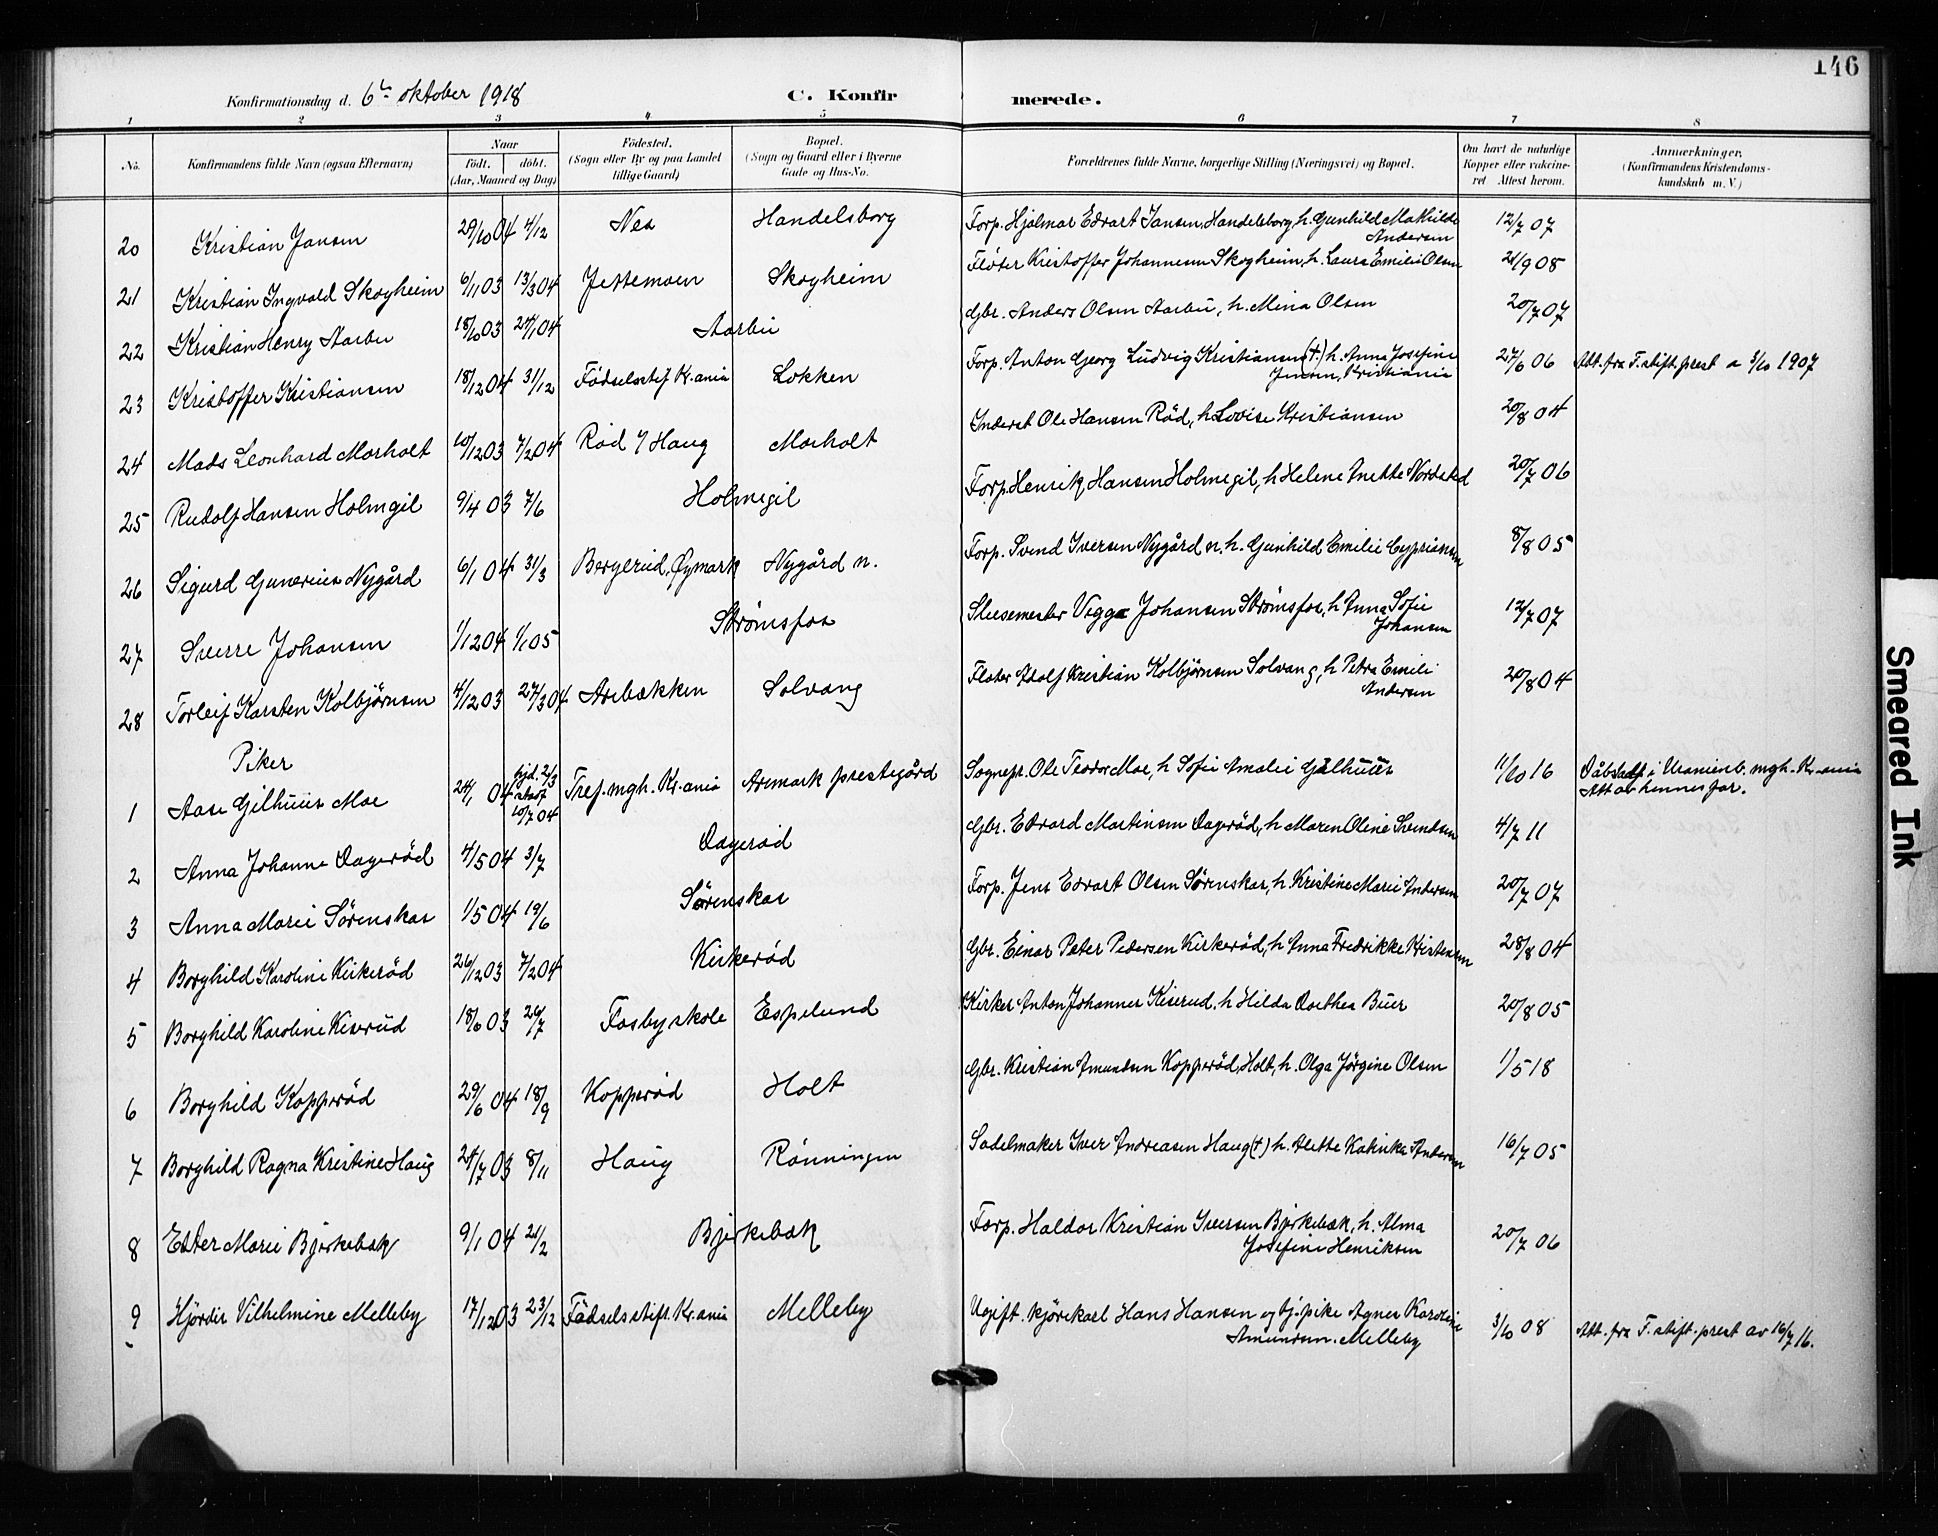 146
Konfirmationsdag d. 6te oktober 1918 C. Konfirmerede.
1 2 3 4 5 6 7 8
No. Konfirmandens fulde Navn (ogsaa Efternavn) Naar født. døbt. (Aar, Maaned og Dag) Fødested. (Sogn eller By og paa Landet tillige Gaard) Bopæl. (Sogn og Gaard eller i Byerne Gade og Hus-No. Forældrenes fulde Navne, borgerlige Stilling (Næringsvei) og Bopæl. Om havt de naturlige Kopper eller vakcineret Attest herom. Anmærkninger. (Konfirmandens Kristendomskundskab m. V.)
20 Kristian Jansen 29/10 04 4/12 Nes Handelsborg Forp. Hjalmar Edvart Jansen, Handelsborg, h. Gunhild Mathilde Andersen 12/7 07
21 Kristian Ingvald Skogheim 6/11 03 13/3 04 Jettemoen Skogheim Fløter Kristoffer Johannesen Skogheim, h. Laura Emilie Olsen 21/9 08
22 Kristian Henry Aarbu 18/10 03 24/1 04 Aarbu Gbr. Anders Olsen Aarbu, h. Mina Olsen 20/7 07
23 Kristoffer Kristiansen 18/12 04 31/12 Fødselsstif. Kr.ania Løkken Forp. Anton Georg Ludvig Kristiansen (†) h. Anna Josefine Jensen, Kristiania 27/6 06 Att. fra F. stift. prest a 3/10 1907
24 Mads Leonhard Morholt 10/12 03 7/2 04 Rød i/ Haug Morholt Inderst Ole Hansen Rød, h. Lovise Kristiansen 20/8 04
25 Rudolf Hansen Holmgil 9/4 03 7/6 Holmegil Forp. Henrik Hansen Holmegil, h. Helene Anette Nordsted 20/7 06
26 Sigurd Gunerius Nygård 6/1 04 31/3 Bergerud, Øymark Nygård n. Forp. Svend Iversen Nygård n. h. Gunhild Emilie Cypriansen 8/8 05
27 Sverre Johansen 1/12 04 1/1 05 Strømsfos Slusemester Viggo Johansen Strømsfos, h. Anna Sofie Johansen 12/7 07
28 Torleif Karsten Kolbjørnsen 4/12 03 27/3 04 Arebækken Solvang Fløter Adolf Kristian Kolbjørnsen Solvang, h. Petra Emilie Andersen 20/8 04
Piker
1 Aase Gilhuus Moe 24/1 04 hjd. 2/3 stadf 10/7 04 Tref. mgh. Kr.ania Aremark prestegård Sognepr. Ole Teodor Moe, h. Sofie Amalie Gilhuus 11/10 16 Dåbstadf. i Uranienb. mgh. Kr.ania Att av hennes far.
2 Anna Johanne Dagerød 4/5 04 3/7 Dagerød Gbr. Edvard Martinsen Dagerød, h. Maren Oline Svendsen 4/7 11
3 Anna Marie Sørenskas 1/5 04 19/6 Sørenskas Forp. Jens Edvart Olsen Sørenskas, h. Kristine Marie Andersen 20/7 07
4 Borghild Karoline Kirkerød 26/12 03 7/2 04 Kirkerød Gbr. Einar Peter Pedersen Kirkerød, h. Anna Fredrikke Kristensen 28/8 04
5 Borghild Karoline Kiserud 18/6 03 26/7 Fosby skole Espelund Kirkes. Anton Johannes Kiserud, h. Hilda Dorthea Buer 20/8 05
6 Borghild Kopperød 29/6 04 18/9 Kopperød Holt Gbr. Kristian Amundsen Kopperød, Holt, h. Olga Jørgine Olsen 1/5 18
7 Borghild Ragna Kristine Haug 24/7 03 8/11 Haug Rønningen Sadelmaker Iver Andreasen Haug (†) h. Alette Katinka Andersen 16/7 05
8 Ester Marie Bjørkebæk 9/1 04 21/2 Bjørkebæk Forp. Haldor Kristian Iversen Bjørkebæk, h. Alma Josefine Henriksen 20/7 06
9 Hjørdis Vilhelmine Melleby 17/12 03 23/12 Fødselsstift. Kr.ania Melleby Ugift. kjørekarl Hans Hansen og tj.pike Agnes Karoline Amundsen. Melleby 3/10 08 Att. fra F. stift. prest av 16/7 16.
Smeared Ink